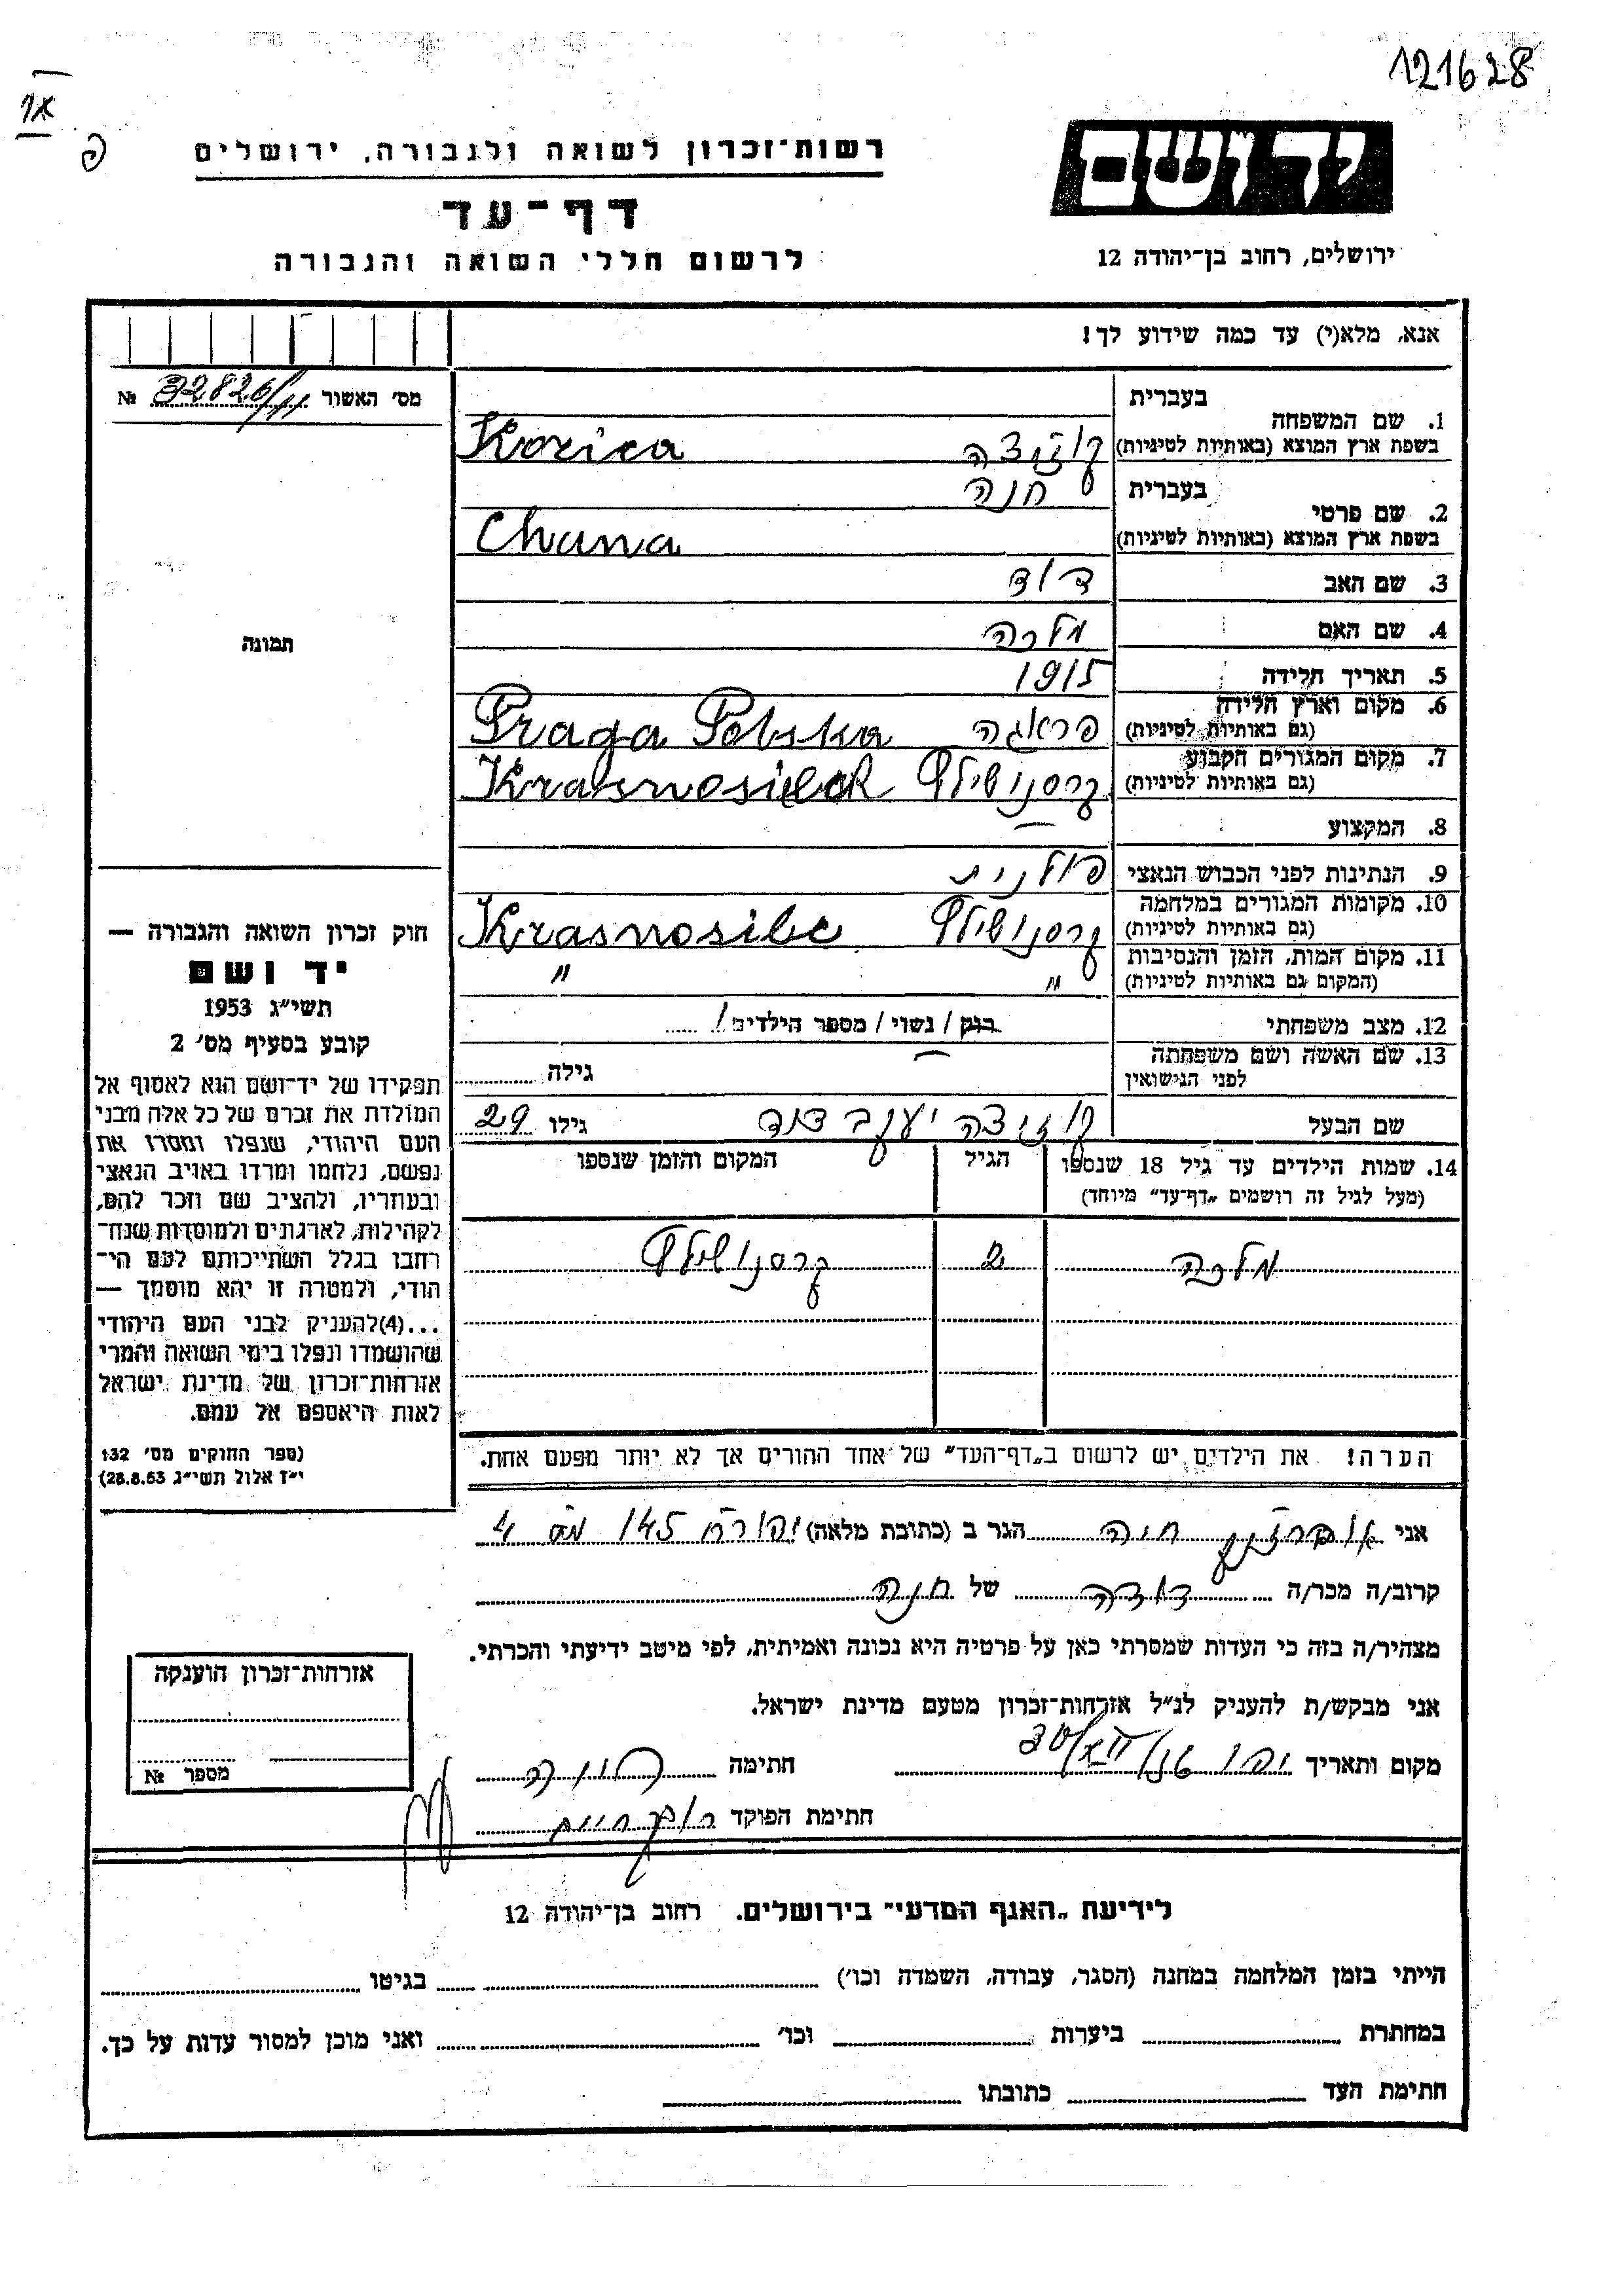 121628
רשות־זכרון לשואה ולגבורה, ירושלים
דף־עד
לרשום חללי השואה והגבורה
יד ושם
ירושלים, רחוב בן־יהודה 12
אנא, מלא(י) עד כמה שידוע לך!
מס׳ האשור 32826/11 №
1. שם המשפחה
בעברית
בשפת ארץ המוצא (באותיות לטיניות) קוזיצה Kozica
2. שם פרטי
בעברית חנה
בשפת ארץ המוצא (באותיות לטיניות) Chana
3. שם האב דוד
4. שם האם מלכה
5. תאריך הלידה 1915
6. מקום וארץ הלידה
(גם באותיות לטיניות) פראגה Praga Polska
7. מקום המגורים הקבוע
(גם באותיות לטיניות) קרסנושילץ Krasnosielc
8. המקצוע —
9. הנתינות לפני הכבוש הנאצי פולנית
10. מקומות המגורים במלחמה
(גם באותיות לטיניות) קרסנושילץ Krasnosilc
11. מקום המות, הזמן והנסיבות
(המקום גם באותיות לטיניות) " "
12. מצב משפחתי רוק / נשוי / מספר הילדים 1
13. שם האשה ושם משפחתה
לפני הנישואין — גילה
שם הבעל קוזיצה יעקב דוד גילו 29
14. שמות הילדים עד גיל 18 שנספו
(מעל לגיל זה רושמים „דף־עד” מיוחד)
הגיל
המקום והזמן שנספו
מלכה 2 קרסנושילץ
הערה! את הילדים יש לרשום ב„דף־העד” של אחד ההורים אך לא יותר מפעם אחת.
תמונה
חוק זכרון השואה והגבורה —
יד ושם
תשי״ג 1953
קובע בסעיף מס׳ 2
תפקידו של יד־ושם הוא לאסוף אל
המולדת את זכרם של כל אלה מבני
העם היהודי, שנפלו ומסרו את
נפשם, נלחמו ומרדו באויב הנאצי
ובעוזריו, ולהציב שם וזכר להם,
לקהילות, לארגונים ולמוסדות שנח־
רבו בגלל השתייכותם לעם הי־
הודי, ולמטרה זו יהא מוסמך —
...(4)להעניק לבני העם היהודי
שהושמדו ונפלו בימי השואה והמרי
אזרחות־זכרון של מדינת ישראל
לאות היאספם אל עמם.
(ספר החוקים מס׳ 132
י״ז אלול תשי״ג 28.8.53)
אני חיה הגר ב (כתובת מלאה) 145
קרוב/ה מכר/ה דודה של חנה
מצהיר/ה בזה כי העדות שמסרתי כאן על פרטיה היא נכונה ואמיתית, לפי מיטב ידיעתי והכרתי.
אני מבקש/ת להעניק לנ״ל אזרחות־זכרון מטעם מדינת ישראל.
מקום ותאריך חתימה
חתימת הפוקד
אזרחות־זכרון הוענקה
מספר №
לידיעת „האגף המדעי” בירושלים. רחוב בן־יהודה 12
הייתי בזמן המלחמה במחנה (הסגר, עבודה, השמדה וכו׳) בגיטו
במחתרת ביערות וכו׳ ואני מוכן למסור עדות על כך.
חתימת העד כתובתו